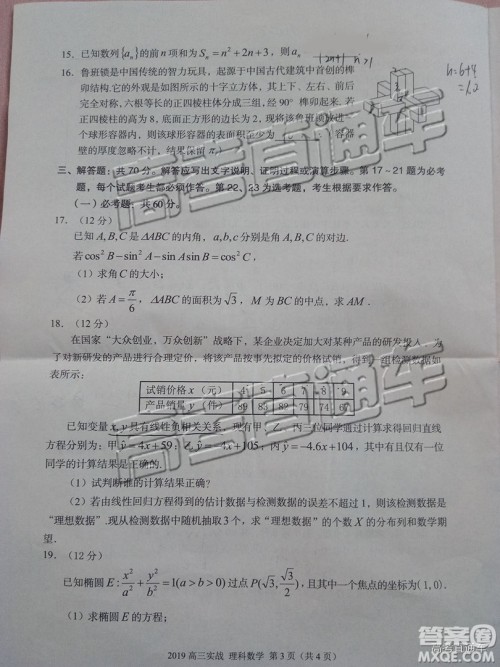 15. 已知数列{aₙ}的前n项和为Sₙ=n²+2n+3,则aₙ
16. 鲁班锁是中国传统的智力玩具,起源于中国古代建筑中首创的榫
卯结构.它的外观是如图所示的十字立方体,其上下、左右、前后
完全对称,六根等长的正四棱柱体分成三组,经90°榫卯起来.若
正四棱柱的高为8,底面正方形的边长为
个球形容器内,则该球形容器的表面积至少为 容器
壁的厚度忽略不计,结果保留
三、解答题:共70分。解答应写出文字说明、证明过程或演算步骤。第17-21题为必考
题,每个试题考生都必须作答。第22、23为选考题,考生根据要求作答。
(一)必考题:共60分。
17. (12分)
已知A,B,C是ΔABC的内角,a,b,c分别是角A,B,C的对边.
若cos²B−sin²A−sinAsinB=cos²C,
(1)求角C的大小;
(2)若A=π/6,ΔABC的面积为√3,M为BC的中点,求AM.
18. (12分)
在国家“大众创业,万众创新”战略下,某企业决定加大对某种产品的研发投入
了对新研发的产品进行合理定价,将该产品按事先拟定的价格试销,得到一组检测数据如
表所示:
试销价格x(元) 4 5 6 7 8 9
产品销量y(件) 89 85 89 79 74 67
已知变量x,y只有线性负相关关系,现有甲、乙、丙三位同学通过计算求得回归直线
方程分别为:甲ŷ=4x+59;乙ŷ=−4x+105;丙ŷ=−4.6x+104,其中有且仅有一位
同学的计算结果是正确的.
(1)试判断谁的计算结果正确?
(2)若由线性回归方程得到的估计数据与检测数据的误差不超过1,则该检测数据是
“理想数据”.现从检测数据中随机抽取3个,求“理想数据”的个数X的分布列和数学期
望.
19. (12分)
已知椭圆E:x²/a²+y²/b²=1(a>b>0)过点P(√3,√3/2),且其中一个焦点的坐标为(1,0).
(1)求椭圆E的方程;
2019高三实战 理科数学 第3页(共4页)
高考直通车
高考直通车
答案圈
MXQE.COM